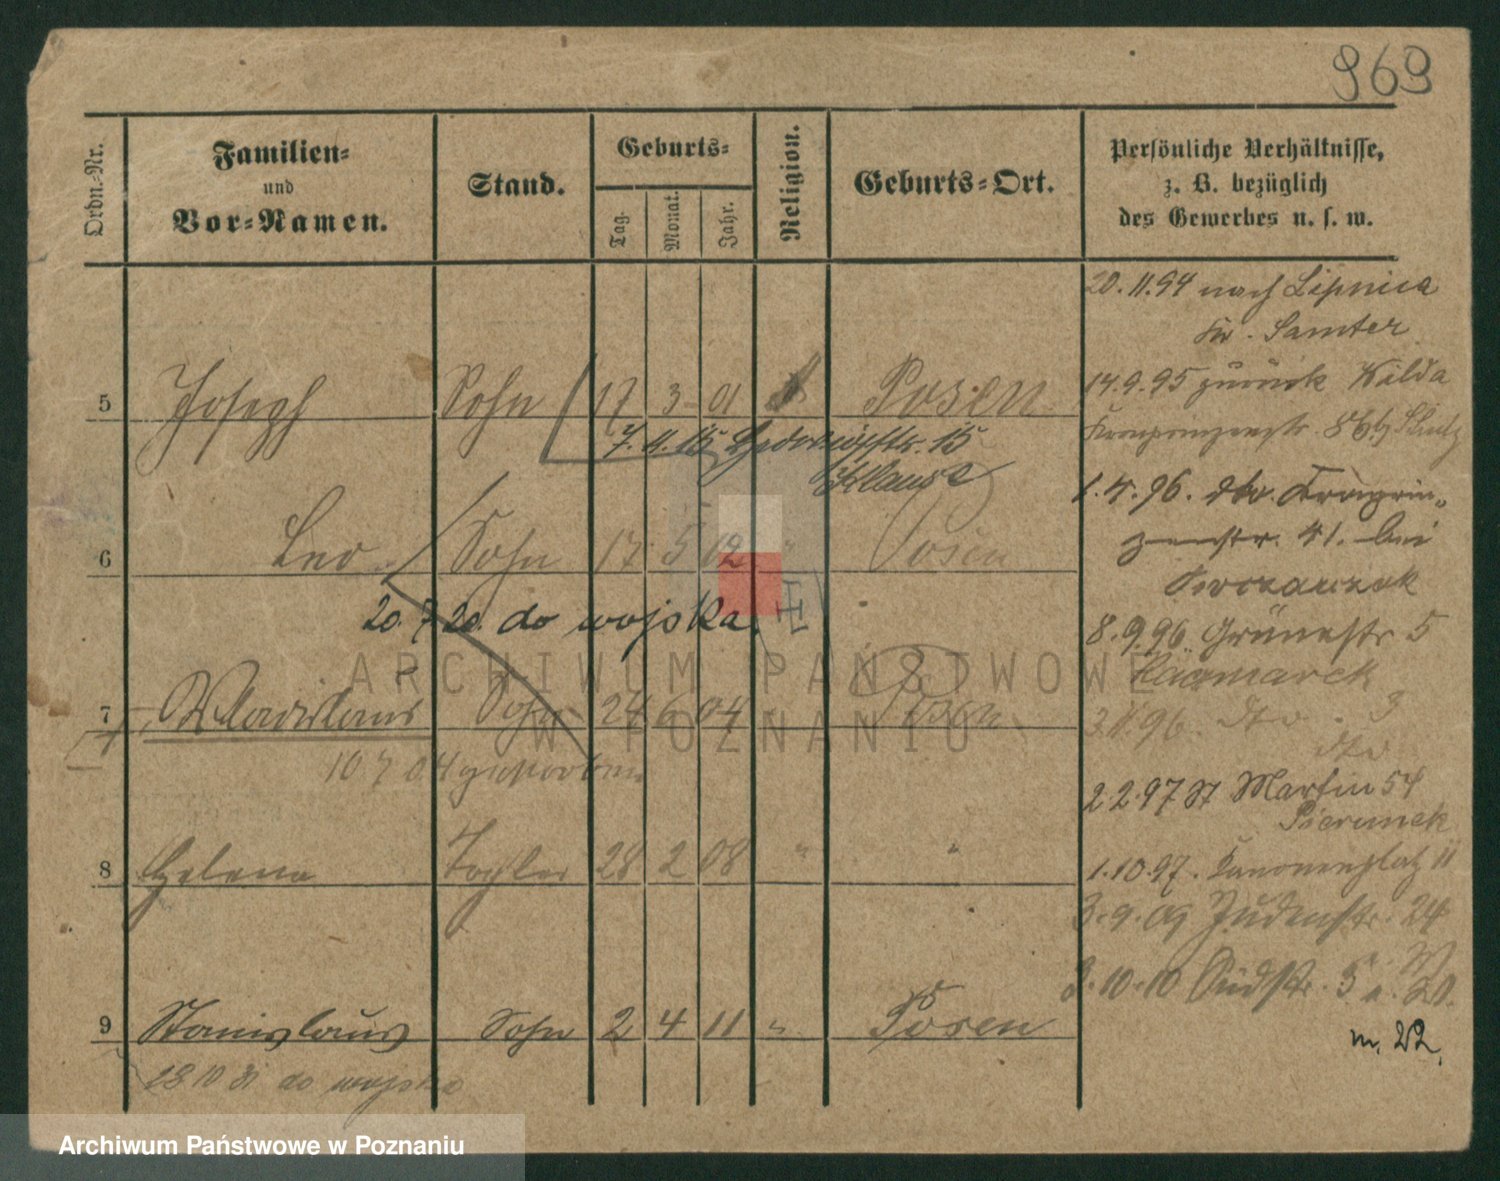 969
Ordn.-Nr.
Familien-
und
Vor-Namen.
Stand.
Geburts-
Tag.
Monat.
Jahr.
Religion.
Geburts-Ort.
Persönliche Verhältnisse,
z. B. bezüglich
des Gewerbes u. s. w.
20.11.94 nach Lipnica
Kr. Samter
5 Joseph Sohn 17 3 01 Posen
14.9.95 zurück Wilda
Kronprinzenstr. 86b
7.11.15 15
1.4.96. dto. Kronprin-
zenstr. 41. bei
6 Leo Sohn 17 5 02 " Posen
20.7.20. do wojska.
8.9.96 Grünestr 5
Kaczmarek
7 Wladislaus Sohn 24 6 04 Posen
3.11.96. dto. 3
dto
10 7 04 gestorben
2.2.97 St Martin 54
8 Helena Tochter 28 2 08 " "
1.10.97. Kanonenplatz 11
3.9.09 Judenstr. 24
3.10.10 Südstr. 5
9 Stanislaus Sohn 2 4 11 " Posen
m. 22.
28 10 31 do wojska
ARCHIWUM PAŃSTWOWE
W POZNANIU
Archiwum Państwowe w Poznaniu